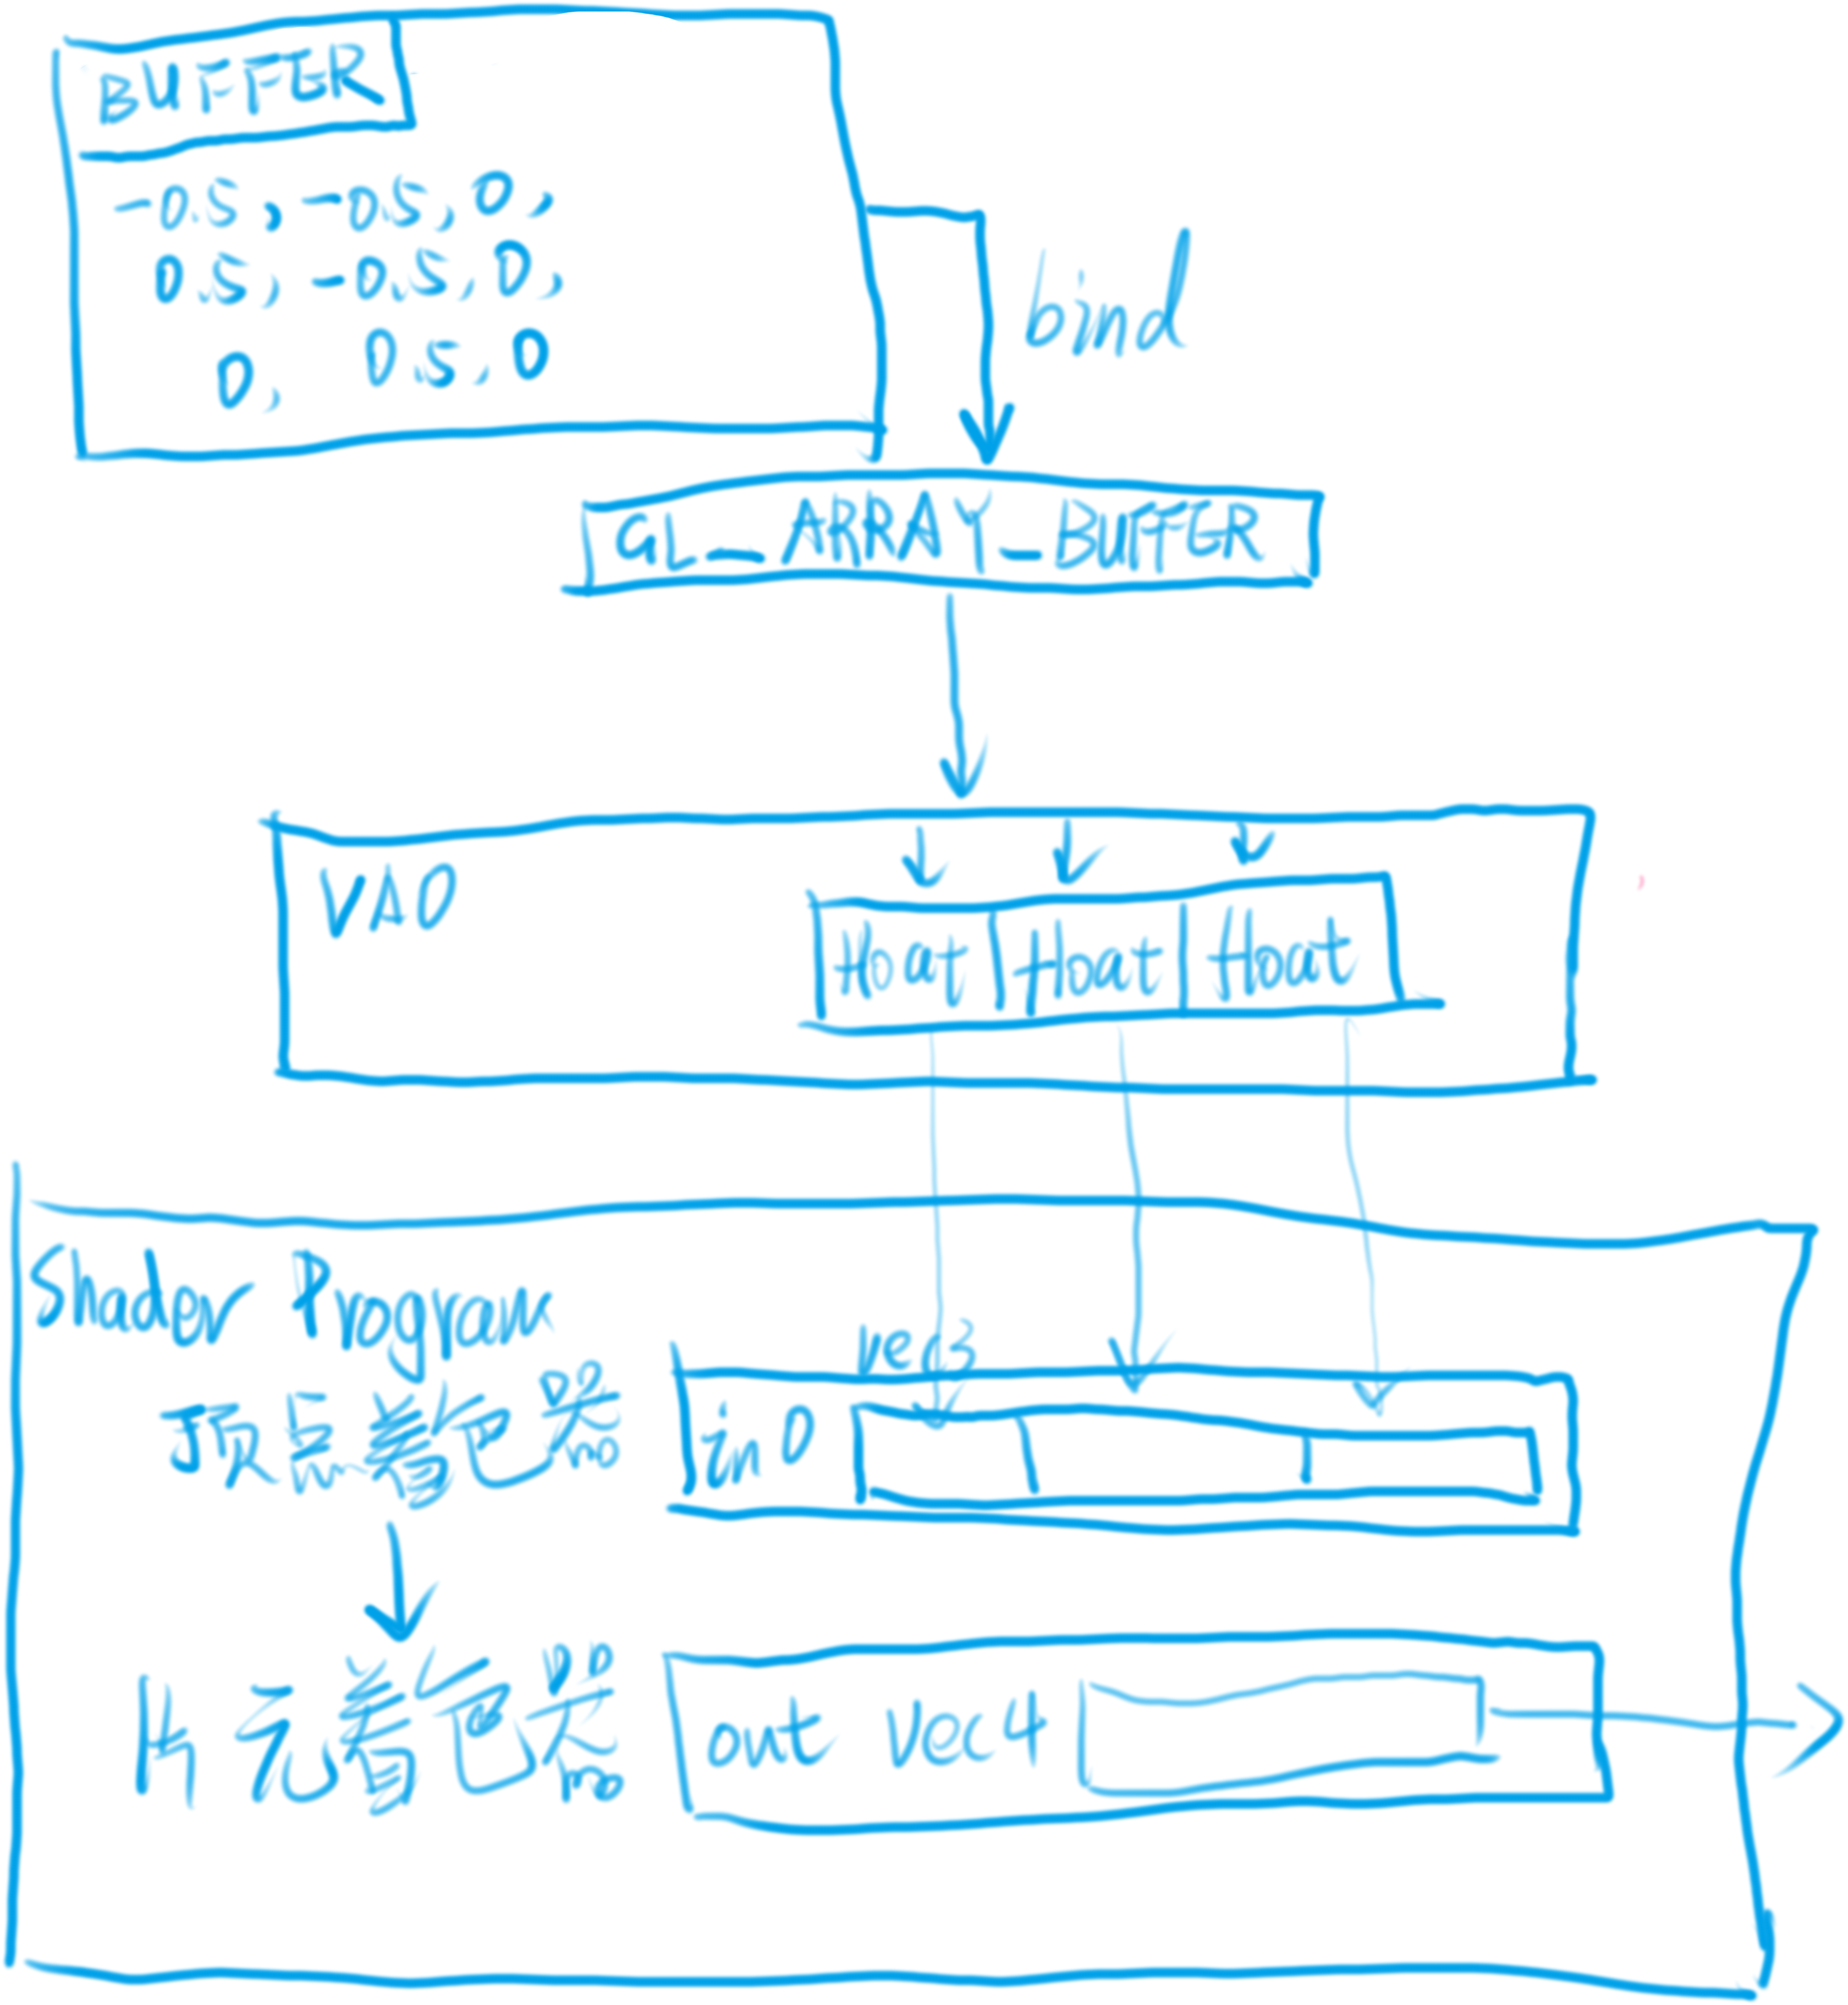 BUFFER
-0.5, -0.5, 0,
0.5, -0.5, 0,
0, 0.5, 0
bind
GL_ARRAY_BUFFER
VAO
float float float
Shader Program
vec3
顶点着色器
in 0
片元着色器
out vec4